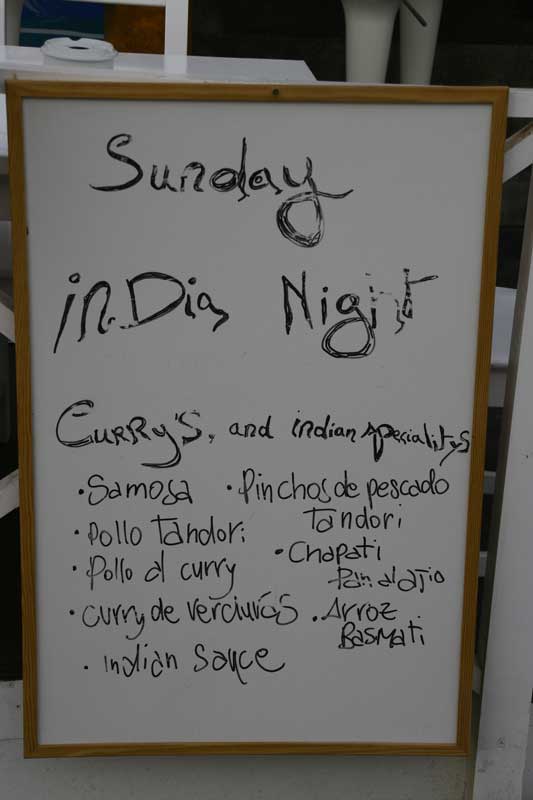 Sunday
inDia Night
Curry's, and indian specialitys
· Samosa
· Pollo Tandori
· Pollo al curry
· curry de verduras
· indian sauce
· Pinchos de pescado
Tandori
· Chapati
Pan al ajio
· Arroz
Basmati